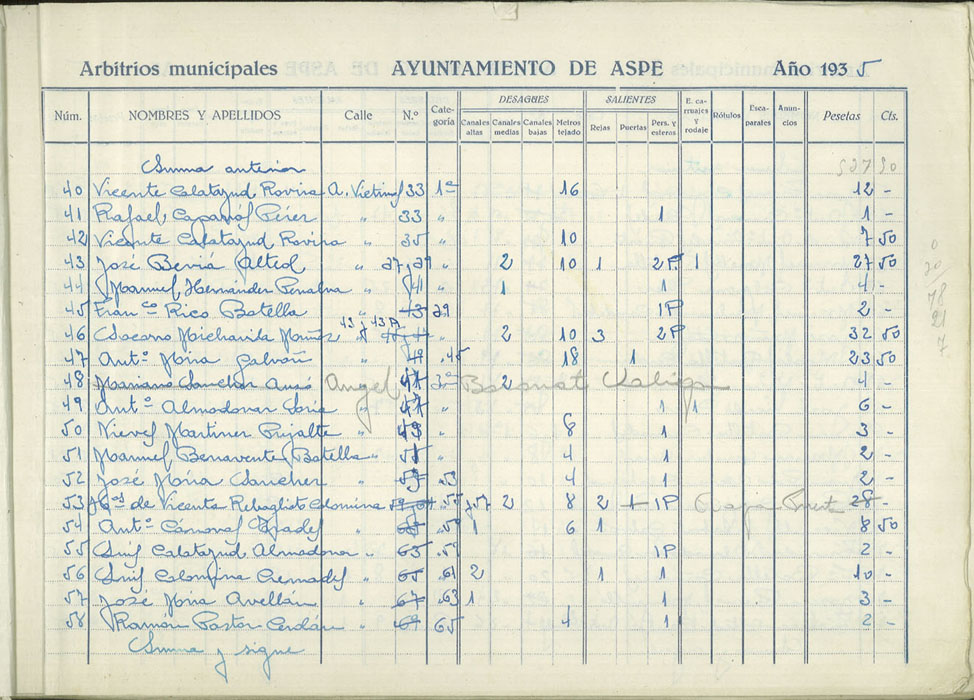 Arbitrios municipales AYUNTAMIENTO DE ASPE Año 1935
Núm. NOMBRES Y APELLIDOS Calle N.º Categoría DESAGUES Canales altas Canales medias Canales bajas Metros tejado SALIENTES Rejas Puertas Pers. y esteros E. carruajes y rodaje Rótulos Escaparates Anuncios Pesetas Cts.
Suma anterior 537 50
40 Vicente Calatayud Rovira A. Vieting 33 1ª 16 12 -
41 Rafael Caparrós Pérez " 33 " 1 1 -
42 Vicente Calatayud Rovira " 35 " 10 7 50
43 José Beviá Alted " 37, 39 " 2 10 1 2P. 1 27 50
44 Manuel Hernández Penalva " 41 " 1 1 4 -
45 Franco Rico Botella " 43 1P 2 -
46 Socorro Michavila Muñoz 43 y 43 A " 2 10 3 2P 32 50
47 Antº Mira Galvañ " 45 18 1 23 50
48 Mariano Sánchez Angel 47 3ª 2 4 -
49 Antº Almodovar Soria " 47 " 1 1 6 -
50 Nieves Martinez Pujalte " " 8 1 3 -
51 Manuel Benavente Botella " " 4 1 2 -
52 José Mira Sanchez " 53 4 1 2 -
53 de Vicenta Rebagliato Colomina 55 y 57 2 8 2 1 1P 28 -
54 Antº Cánovas " 59 1 6 1 8 50
55 Luis Calatayud Almodovar " 63 59 1P 2 -
56 Luis Colomina Cremades " 65 61 2 1 1 10 -
57 José Mira Avellán " 67 63 1 1 3 -
58 Ramón Pastor Cerdán " 69 65 4 1 2 -
Suma y sigue